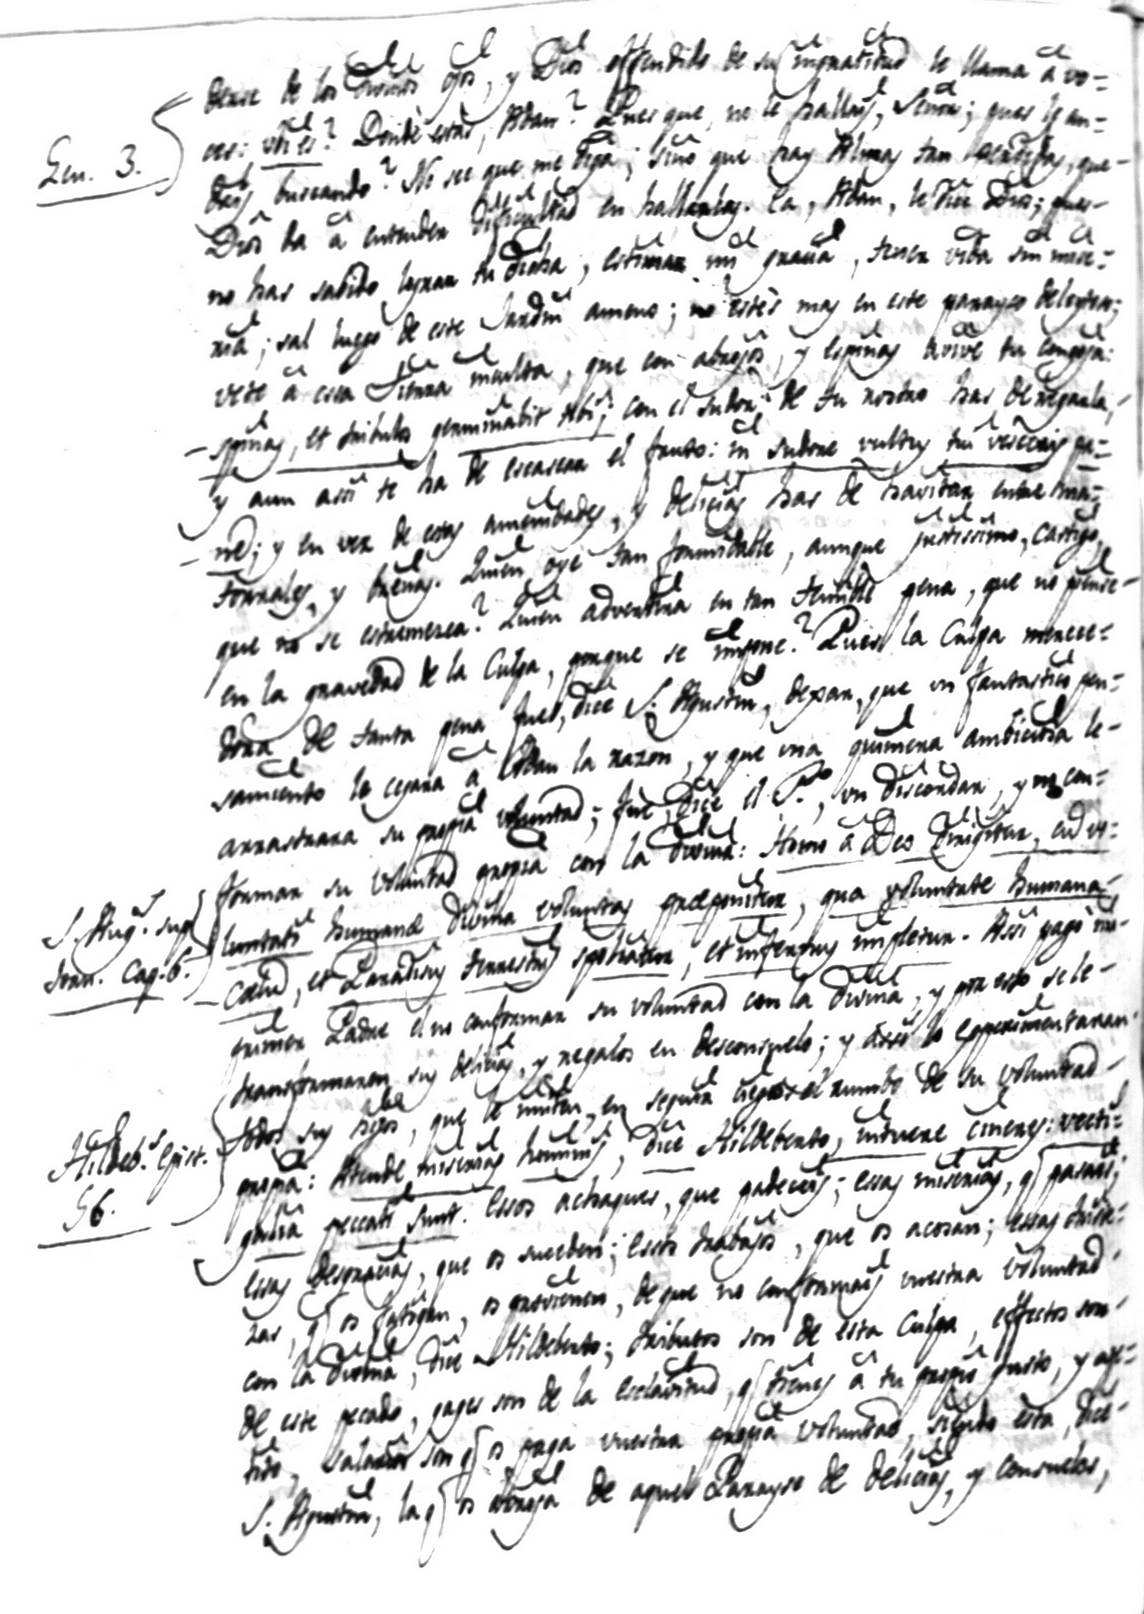 derse de los Divinos ojos, y Dios offendido de su ingratitud le llama à vo-
ces: vbi es? Donde estàs, Adan? Pues que, no le hallais, Señor; pues le an-
Gen. 3.
dais buscando? No see que me diga; sino que hay Almas tan perdidas, que
Dios da à entender dificultad en hallarlas. Ea, Adan, le dice Dios; pues
no has sabido lograr tu dicha, estimar mi gracia, tener vida sin mise-
ria; sal luego de este Jardin ameno; no estès mas en este parayso deleytoso;
vete à essa Tierra inculta, que con abrojos, y espinas avive tu congoja:
spinas, et tribulos germinabit tibi; con el sudor de tu rostro has de regarla,
y aun assi te ha de escasear el fruto: in sudore vultus tui vesceris pa-
ne; y en vez de estas amenidades, y delicias has de havitar entre ma-
torrales, y breñas. Quien oye tan formidable, aunque justissimo, castigo,
que no se estremezca? Quien advertira en tan terrible pena, que no piense
en la gravedad de la Culpa, porque se impone? Pues la Culpa merece-
dora de tanta pena fue, dice S. Agustin, dexar, que vn fantastico pen-
samiento le cegara à Adan la razon, y que una quimera ambiciosa le
arrastrara su propia voluntad; fue, dice el S.to, vn discordar, y no con-
formar su voluntad propia con la Divina: Homo à Deo dirigitur, cum vo-
S. Aug.s sup.
luntati humanæ divina voluntas præponitur, qua voluntate humana
Ioan. Cap. 6.
Cælum, et Paradisus terrestris spoliatur, et infernus impletur. Assi pagò nu-
primer Padre el no conformar su voluntad con la Divina, y por esso se le
transformaron sus delicias, y regalos en desconsuelo; y assi lo experimentaran
todos sus hijos, que le imiten, en seguir ciegos el rumbo de su voluntad
Hildeb.s Epist.
56.
propia: Attende miserias hominis, dice Hildeberto, intuere cineres: vecti-
galia peccati sunt. Essos achaques, que padeceis; essas miserias, q passais;
essas desgracias, que os suceden; essos trabajos, que os acosan; essas triste-
zas, q os fatigan, os provienen, de que no conformais vuestra voluntad
con la Divina, dice Hildeberto; tributos son de esta Culpa, effectos son
de este pecado, gages son de la esclavitud, q tienes à tu propio gusto, y ape-
tito, salarios son q os paga vuestra propia voluntad, siendo esta, dice
S. Agustin, la q os arroja de aquel Parayso de delicias, y consuelos,